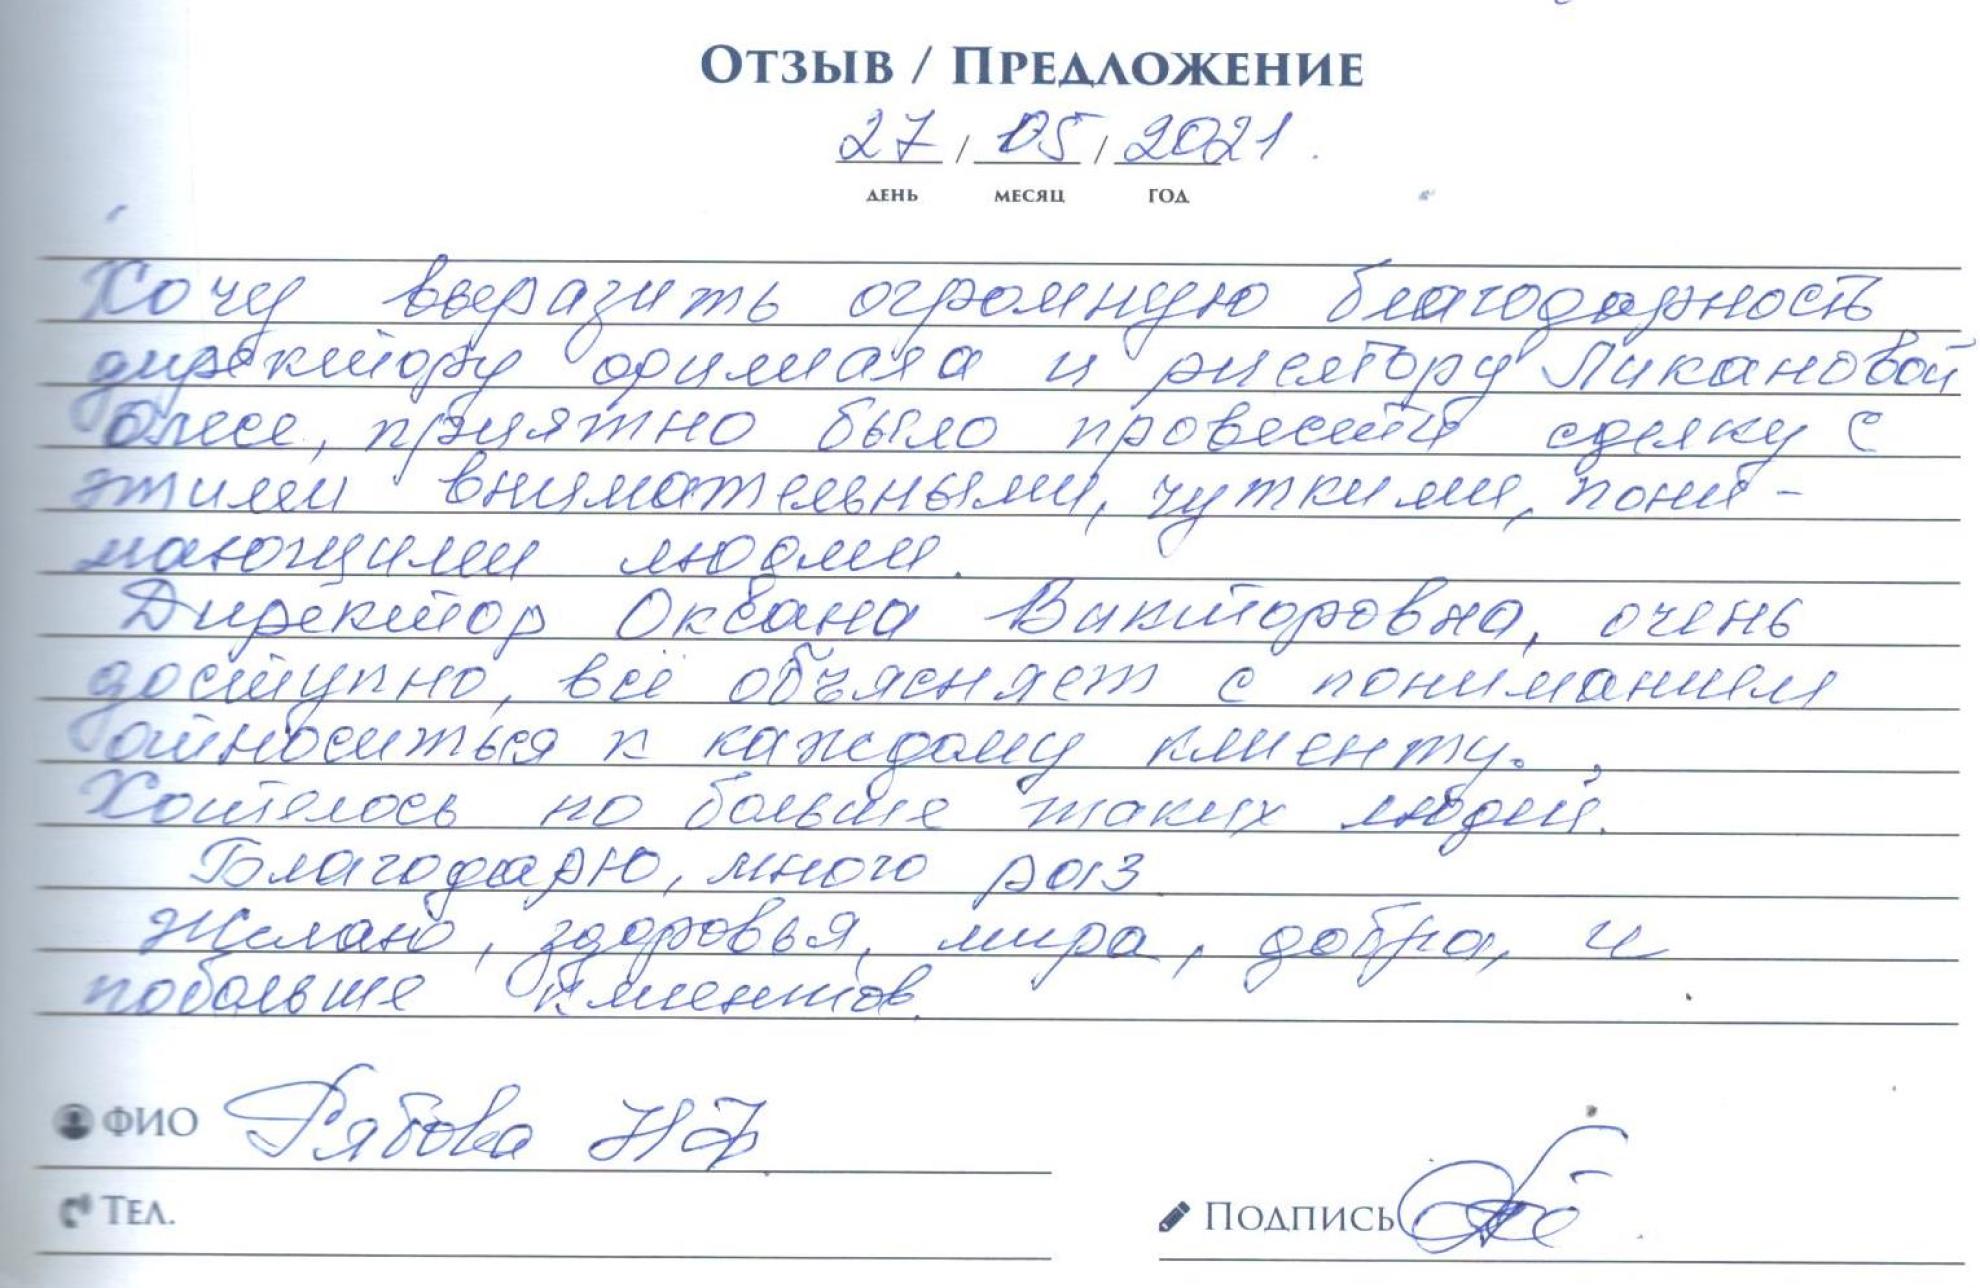 Отзыв / Предложение
27 / 05 / 2021.
день месяц год
Хочу выразить огромную благодарность
директору филиала и риелтору Ликановой
Олесе, приятно было провести сделку с
этими внимательными, чуткими, пони-
мающими людми.
Директор Оксана Викторовна, очень
доступно, всё объясняет с пониманием
относиться к каждому клиенту.
Хотелось по больше таких людей.
Благодарю, много раз
Желаю, здоровья, мира, добра, и
побольше клиентов.
ФИО Рябова НФ.
Тел.
Подпись